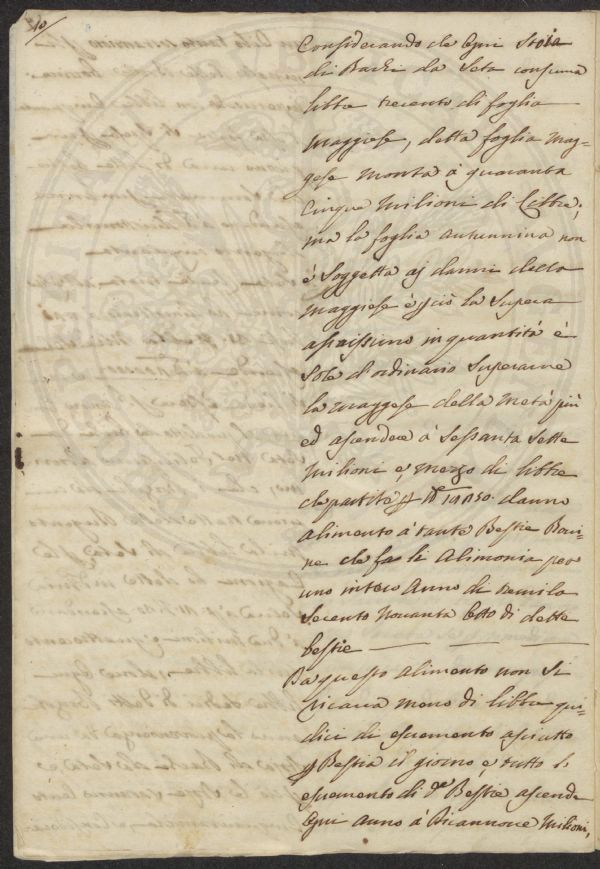 10
Considerando che Ogni Stoia
di Bachi da Seta consuma
libbre trecento di foglia
Maggiese, detta foglia Mag=
gese monta à quaranta
Cinque Milioni di Libbre,
ma la foglia autunnina non
è Soggetta aj danni della
Maggiese è pciò la Supera
assaissimo in quantità è
Sole d'ordinario Superarne
la Maggese della metà più
ed ascendere à Sessanta Sette
Milioni e, mezzo di libbre
che partite danno
alimento à tante Bestie Bovi=
ne che fa li Alimonia per
uno intero Anno di tremila
Secento Novanta Otto di dette
bestie
Da questo alimento non si
ricava meno di libbre qui=
dici di escremento asciutto
p Bestia il giorno e, tutto l
escremento di de Bestie ascende
Ogni anno à Milioni,